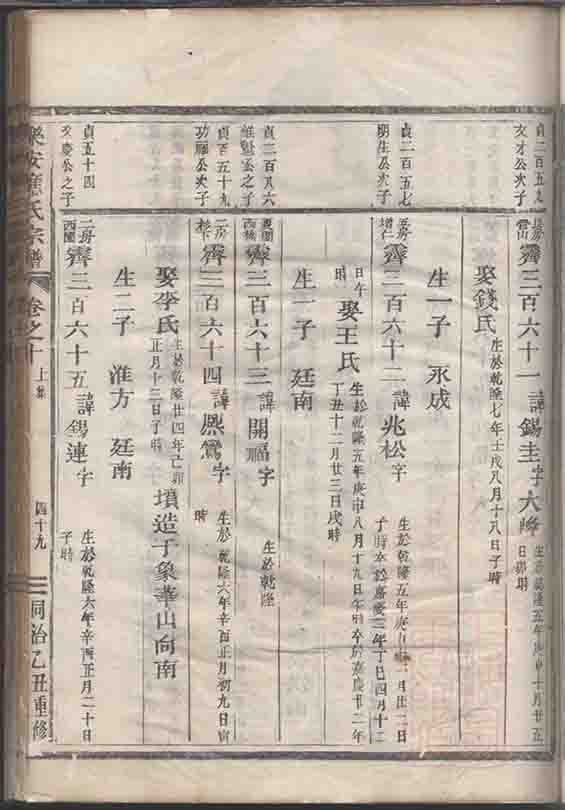 貞二百五九
友才公次子
霽三百六十一 諱錫圭字大
生於乾隆五年庚申十月廿五
日卯時
娶錢氏 生於乾隆七年壬戌八月十八日子時
生一子 永成
貞二百五七
明生公次子
霽三百六十二 諱兆松 字
生於乾隆五年庚
子時卒於嘉慶二年丁巳四月十二
日午
時
娶王氏
生於乾隆五年庚申八月十九日午時卒於嘉慶廿二年
丁丑十二月廿三日戌時
生一子 廷南
貞二百八六
維魁公之子
霽三百六十三 諱開福 字 生於乾隆
貞百五十九
功順公次子
二房
霽三百六十四 諱熙鸞 字
生於乾隆六年辛酉正月初九日寅
時
娶李氏
生於乾隆廿四年己卯
正月十三日子時
墳造于象鼻山向南
生二子 淮方 廷南
貞五十四
文慶公之子
二房
西園
霽三百六十五 諱錫連 字
生於乾隆六年辛酉正月二十日
子時
樂安蔣氏宗譜 卷之十 上集 四十九 同治乙丑重修